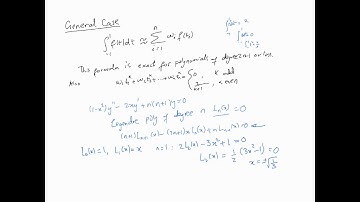 General Case
∫₋₁¹ f(t)dt ≅ Σᵢ₌₁ⁿ wᵢ f(tᵢ)
This formula is exact for polynomials of degree 2n-1 or less.
Also w₁t₁ᵏ + w₂t₂ᵏ + ... + wₙtₙᵏ = { 0, k odd
2/(k+1), k even
(1-x²)y'' - 2xy' + n(n+1)y = 0
Legendre poly of degree n Lₙ(x) = 0
(n+1)Lₙ₊₁(x) - (2n+1)x Lₙ(x) + n Lₙ₋₁(x) = 0
L₀(x) = 1, L₁(x) = x n=1: 2L₂(x) - 3x² + 1 = 0
L₂(x) = 1/2 (3x²-1) = 0
x = ±√(1/3)